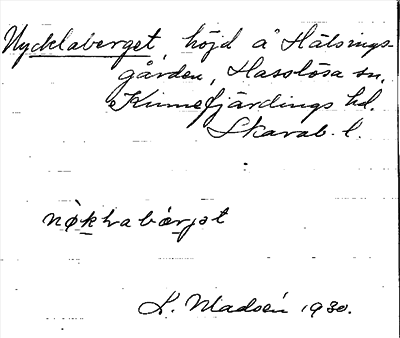 Nycklaberget, höjd å Hälsings-
gården, Hasslösa sn,
Kinnefjärdings hd.
Skarab. l.
nøkhabærjat
K. Madsén 1930.